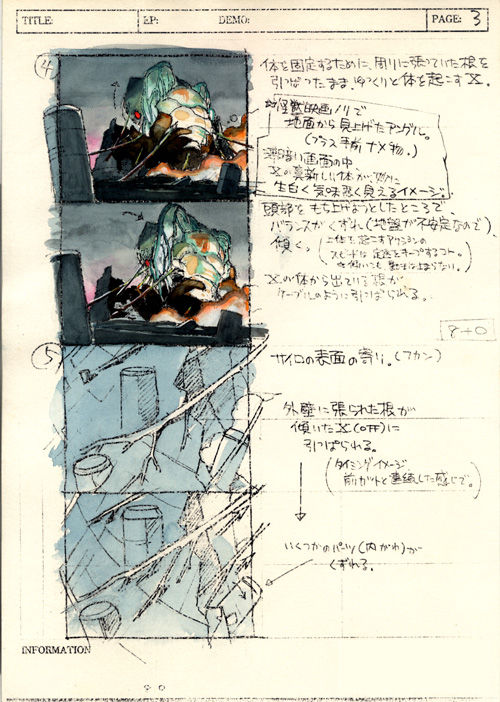 TITLE: EP: DEMO: PAGE: 3
④
体を固定するために、周りに張っていた根を
引っぱったまま、ゆっくりと体を起こすX。
怪獣映画ノリで
地面から見上げたアングル。
(プラス手前ナメ物。)
薄暗い画面の中
Xの真新しい体が
生白く気味悪く見えるイメージ。
頭部をもち上げようとしたところで、
バランスがくずれ(地盤が不安定なので)
傾く。
上体を起こすアクションの
スピードは
Xの体から出ている根が
ケーブルのように引っぱられる。
8+0
⑤
サイロの表面の寄り。(フカン)
外壁に張られた根が
傾いたX(OFF)に
引っぱられる。
タイミングイメージ
前カットと連続した感じで。
いくつかのパーツ(内がわ)が
くずれる。
INFORMATION